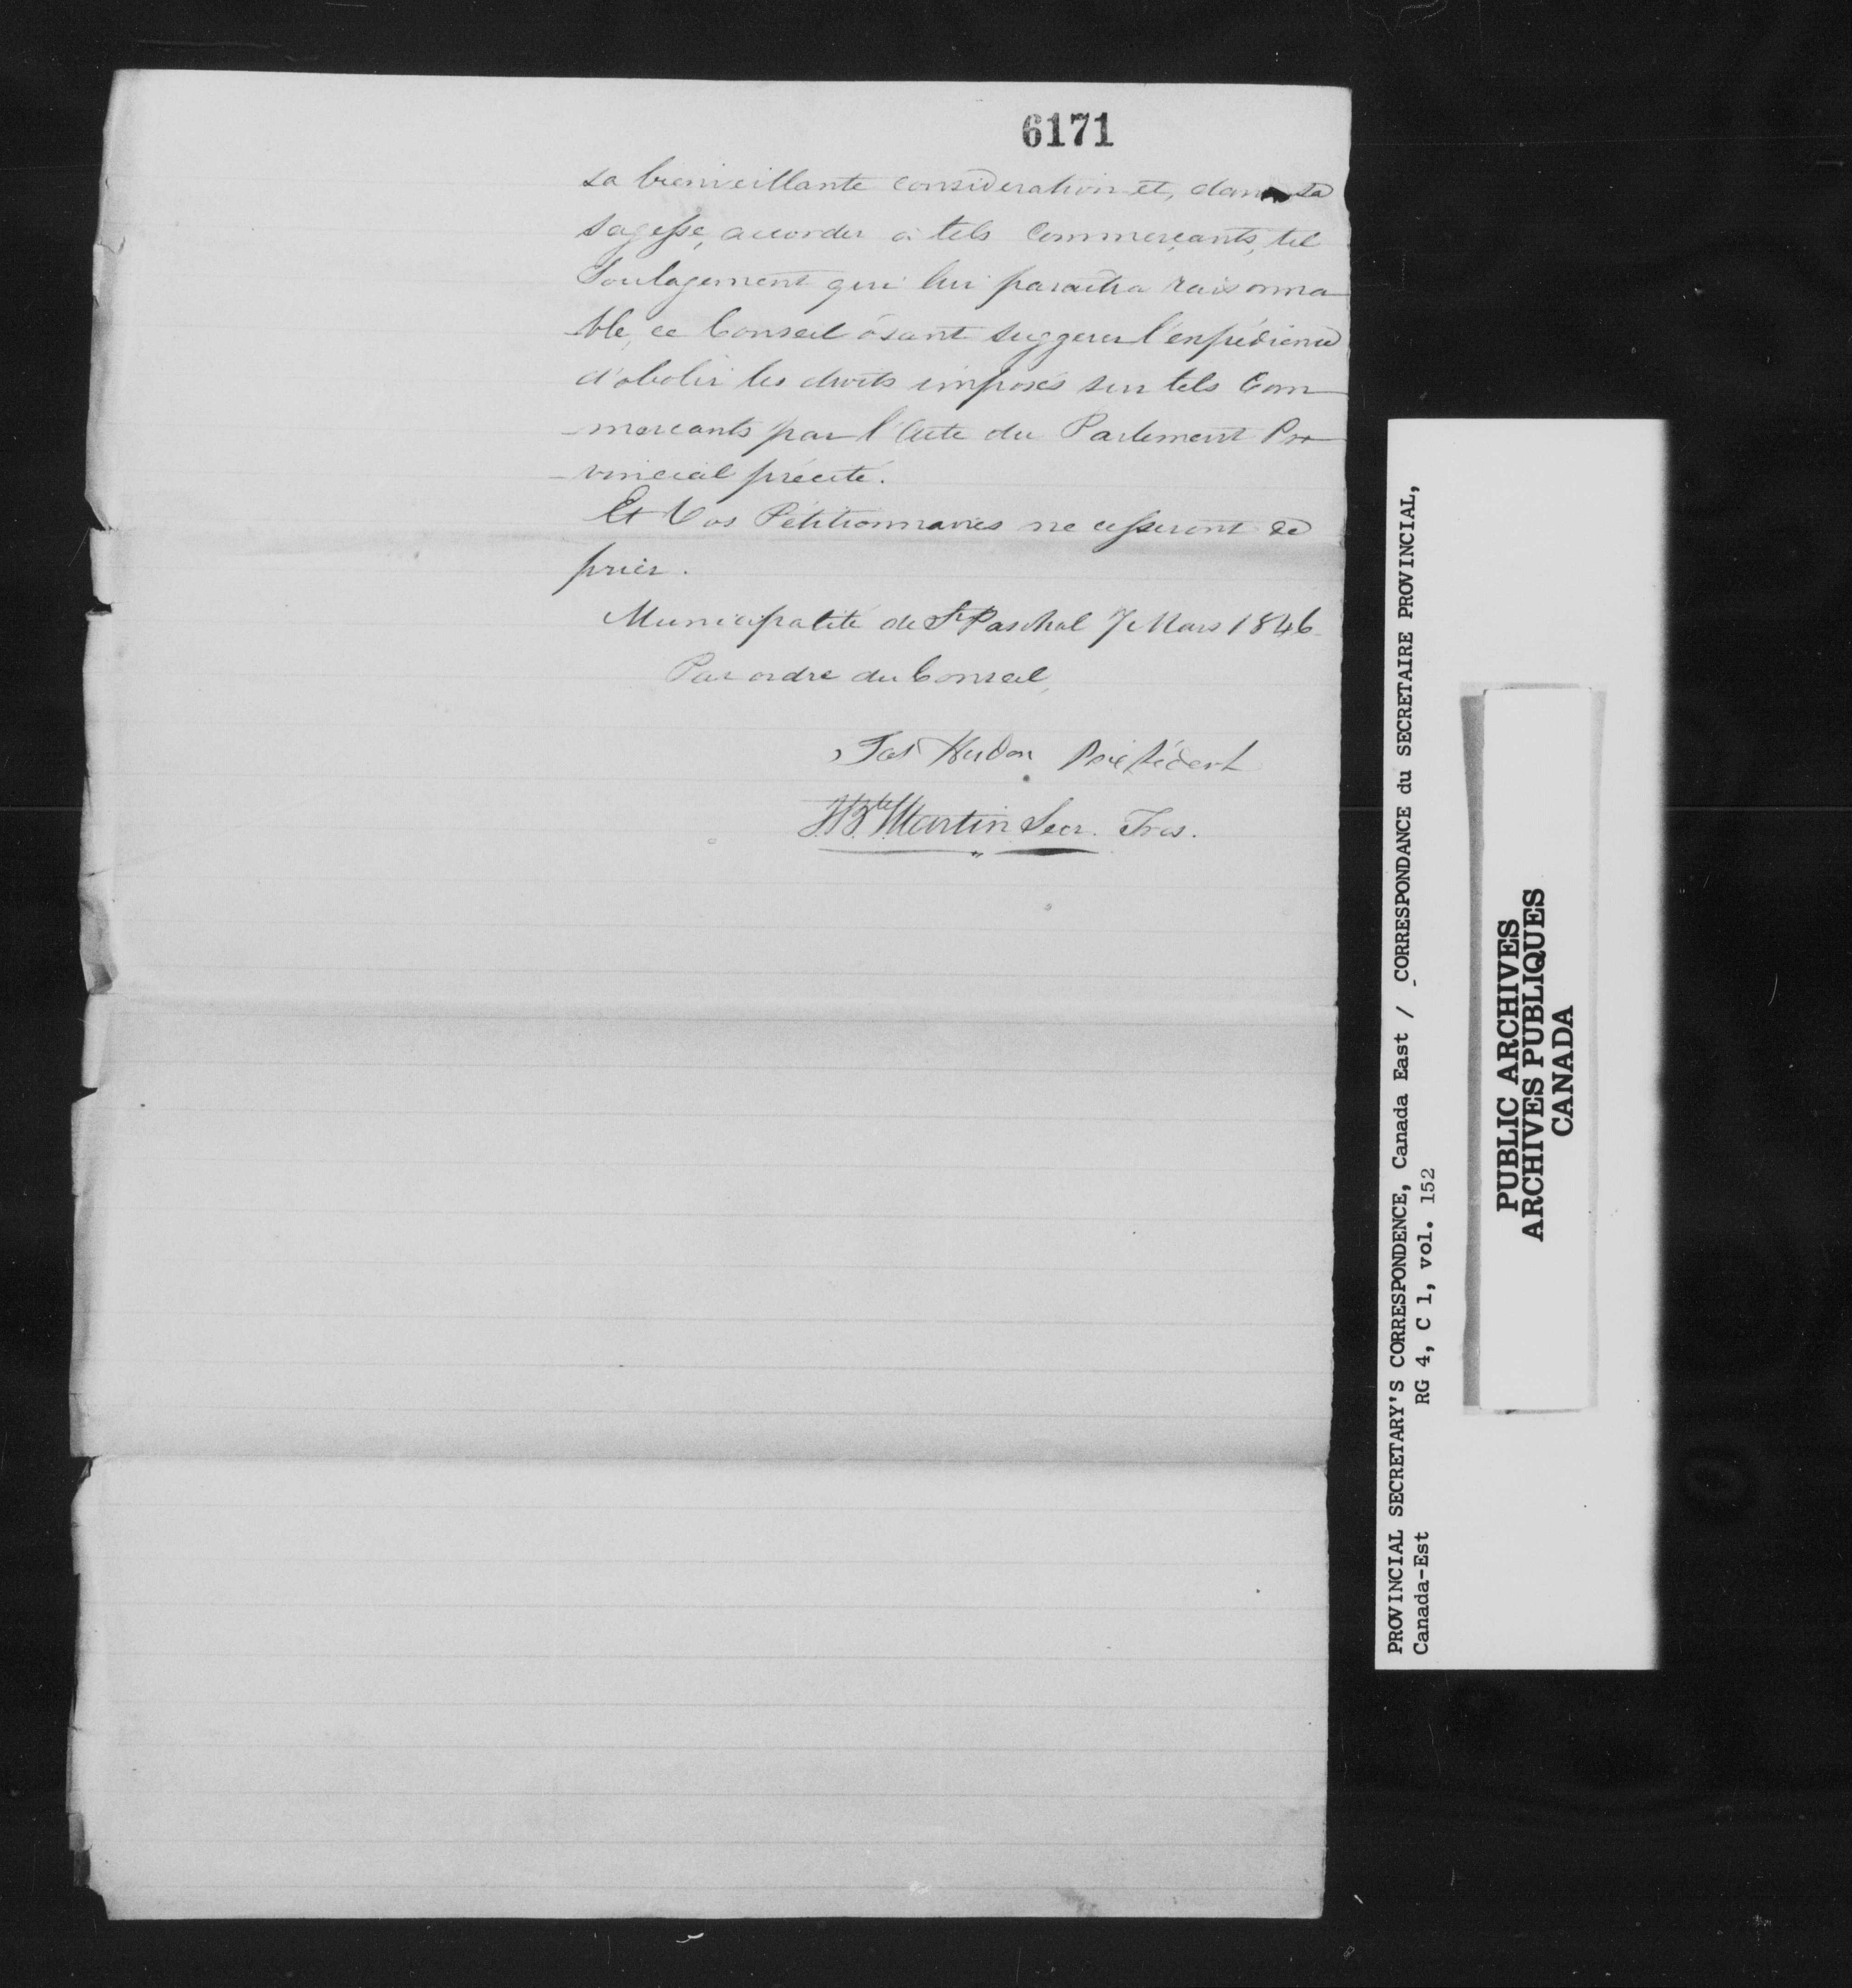 6171
sa bienveillante consideration et, dans sa
sagesse, accorder à tels Commerçants, tel
Soulagement qui lui paraîtra raisonna
-ble, ce Conseil ôsant suggerer l'expédience
d'abolir les droits imposés sur tels Com
-mercants par l'Acte du Parlement Pro
-vincial précité.
Et Vos Pétitionnaires ne cesseront de
prier.
Municipalité de St Paschal 7 Mars 1846
Par ordre du Conseil,
Hudon
Martin Secr. Tres.
PROVINCIAL SECRETARY'S CORRESPONDENCE, Canada East / CORRESPONDANCE du SECRETAIRE PROVINCIAL,
Canada-Est RG 4, C 1, vol. 152
PUBLIC ARCHIVES
ARCHIVES PUBLIQUES
CANADA